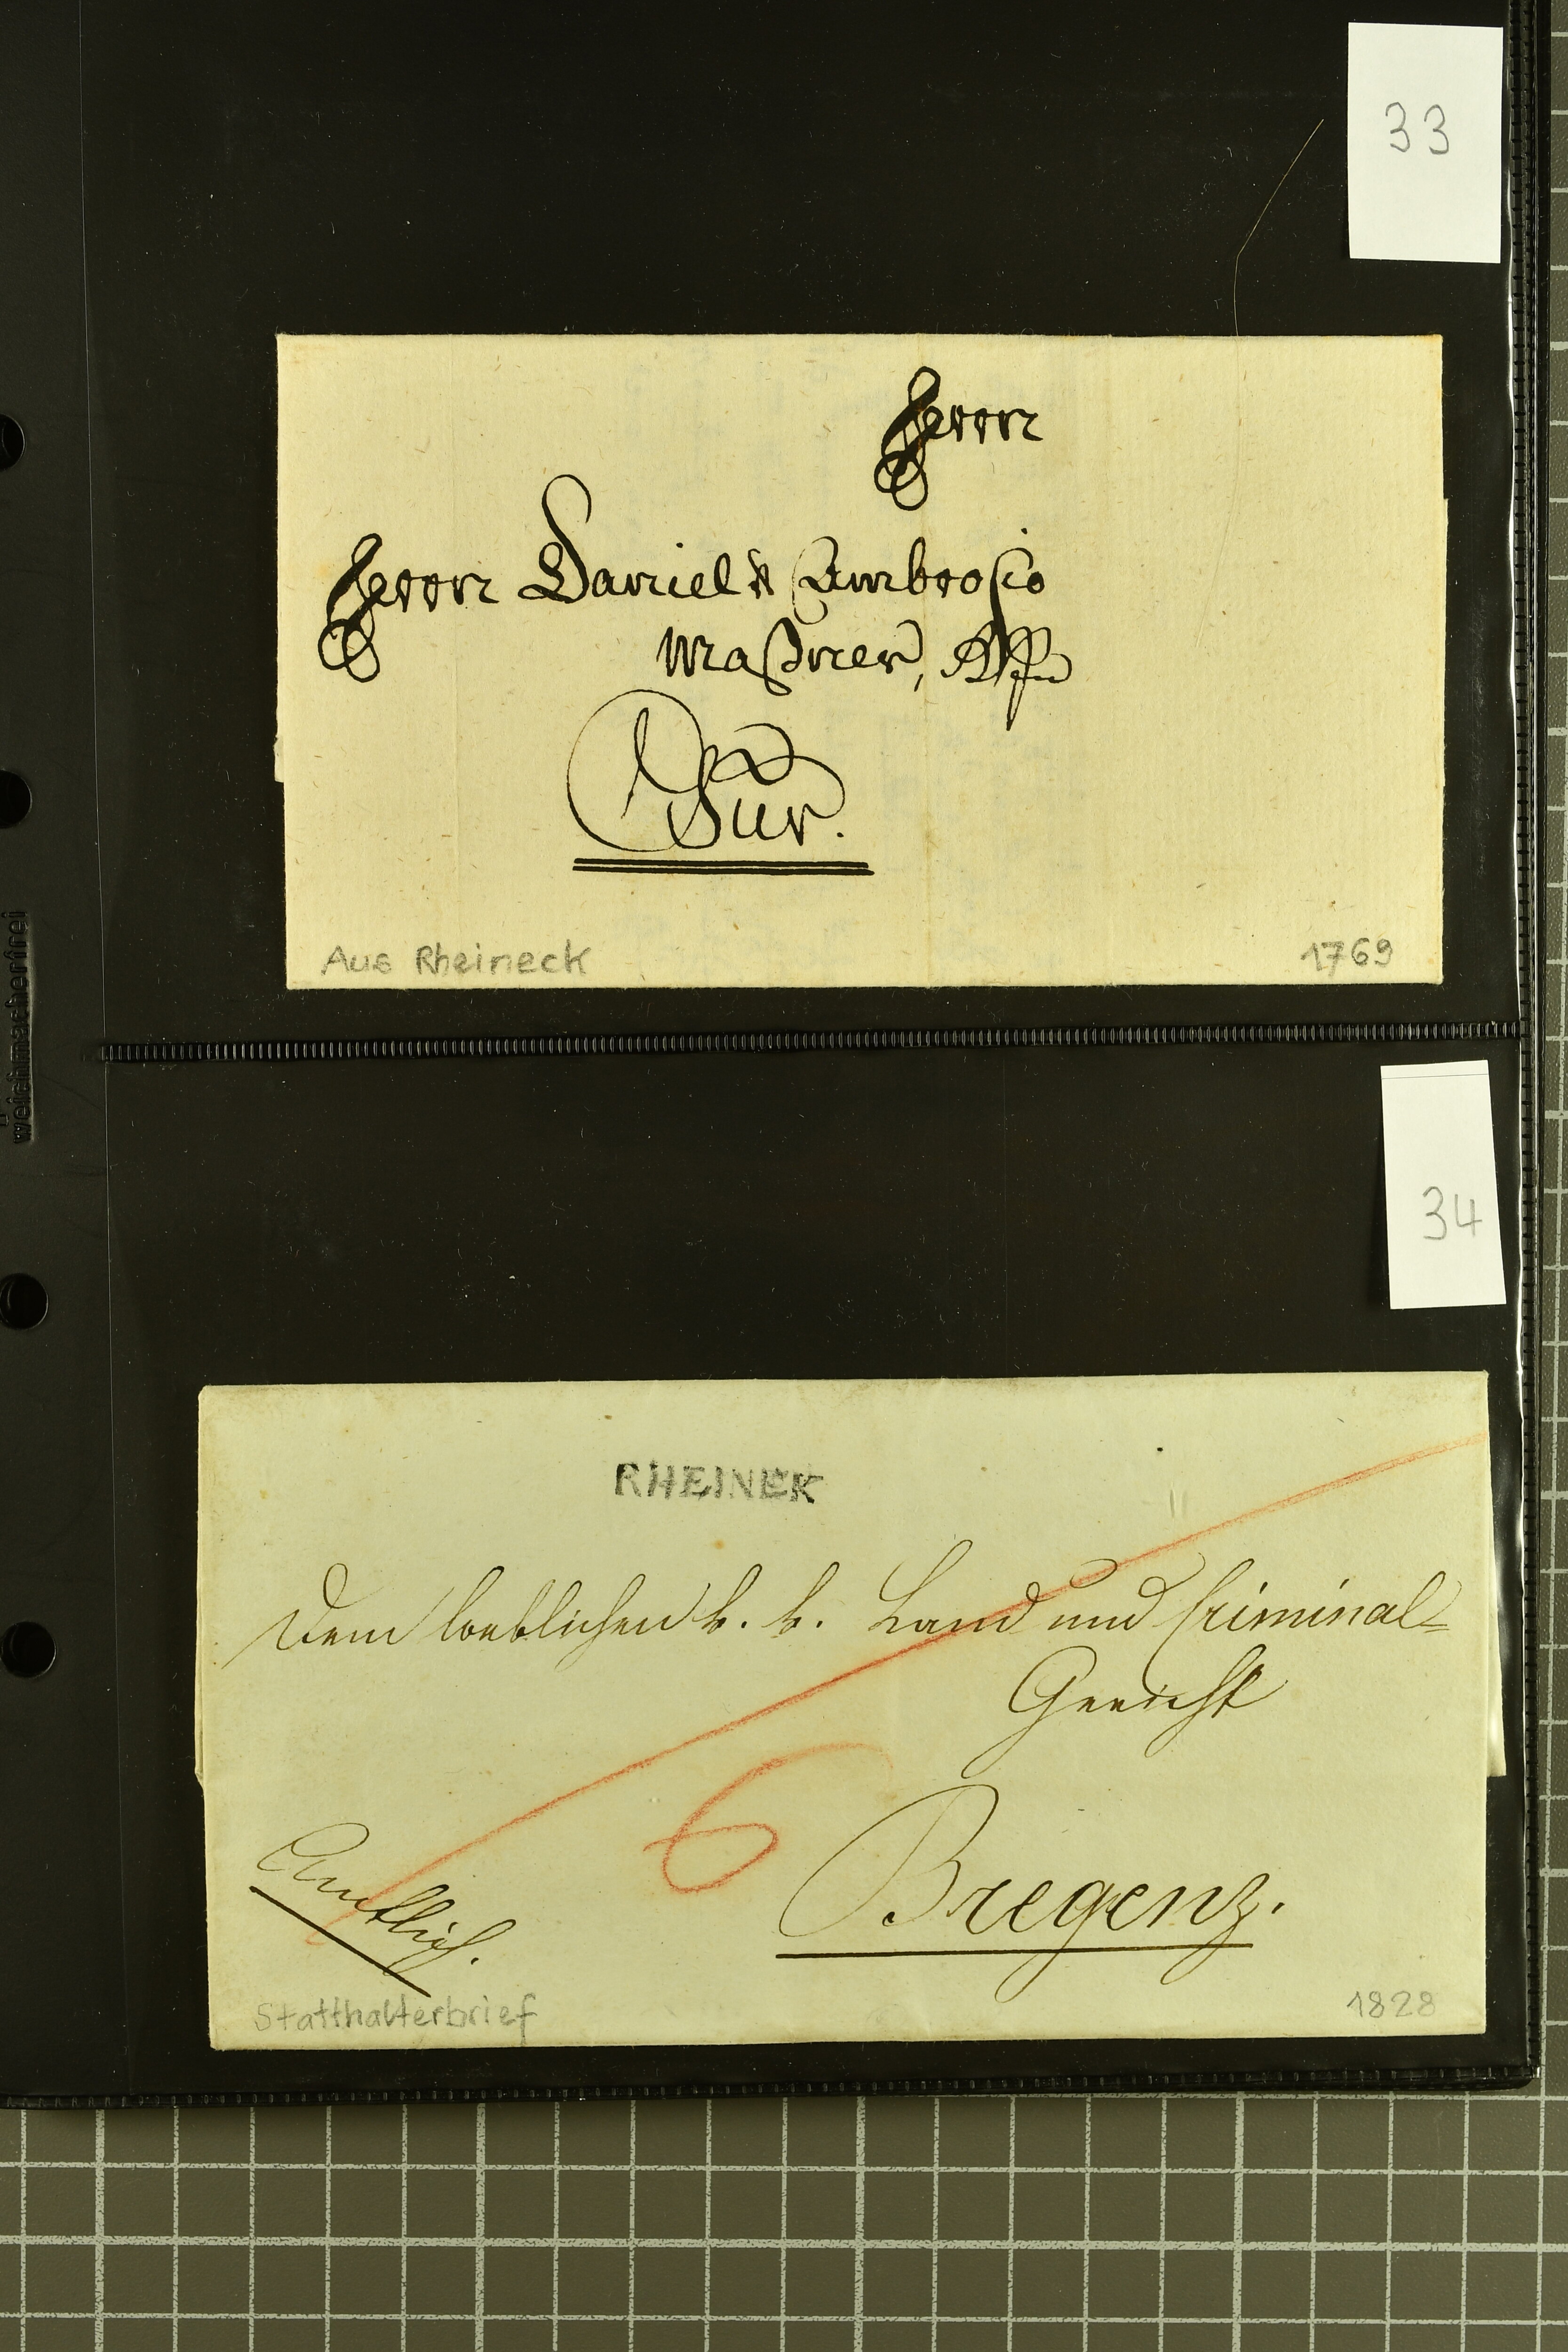 33
Herrn
Herrn Daniel & Ambrosio
Maßner,
Chur.
Aus Rheineck
1769
weichmacherfrei
34
RHEINEK
Dem loeblichen k. k. Land und Criminal=
Gericht
6
Bregenz.
Amtlich.
Statthalterbrief
1828